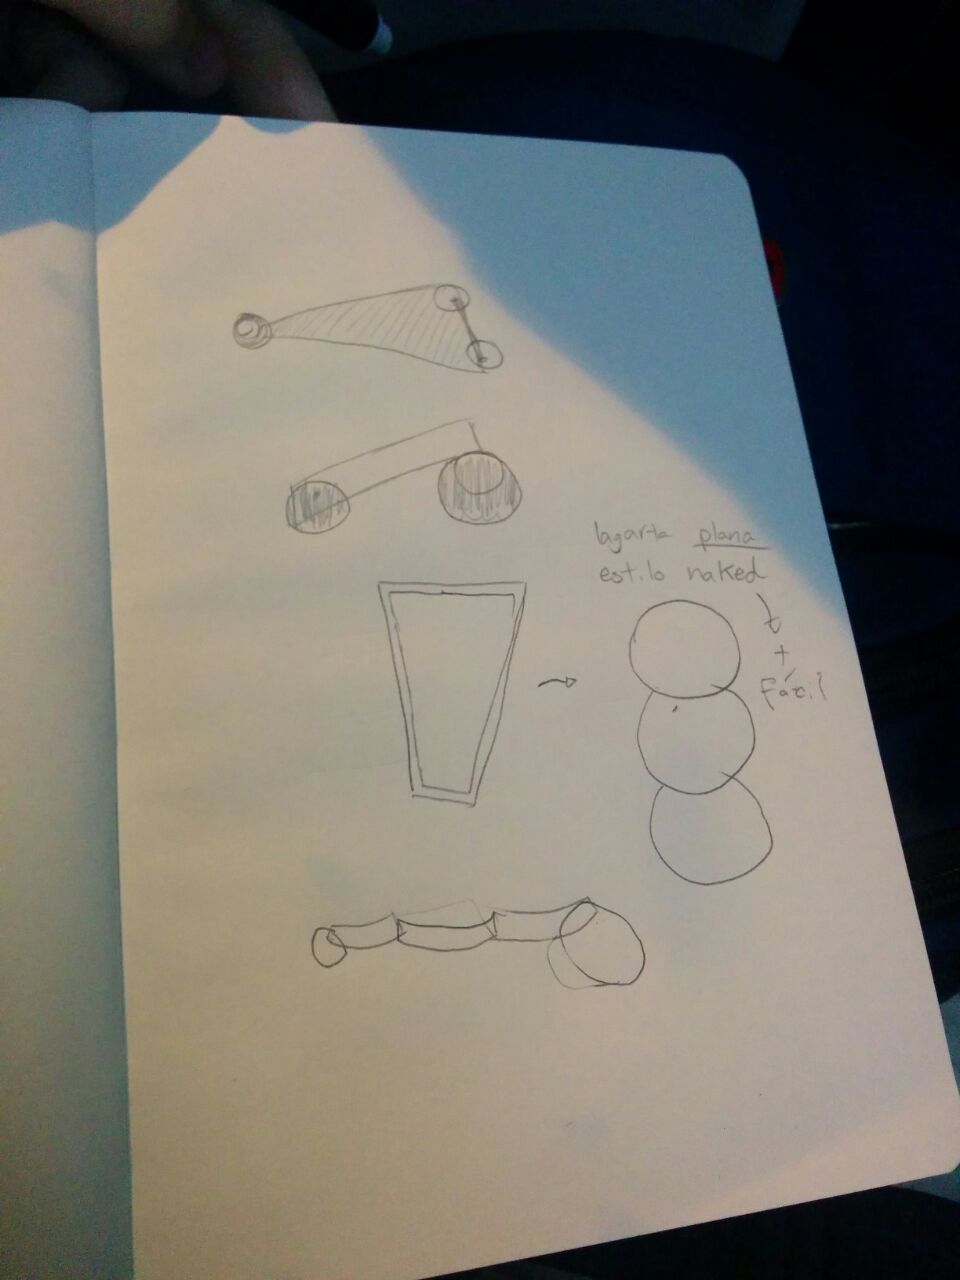 lagarta plana
estilo naked
+
Fácil